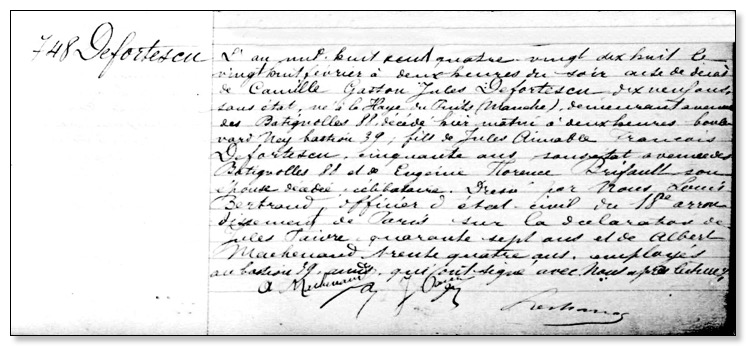 748 Defortescu
L'an mil huit cent quatre vingt dix huit le
vingt huit février à deux heures du soir acte de décès
de Camille Gaston Jules Defortescu dix neuf ans,
sans état, né à la Haye du Puits (Manche), demeurant avenue
des Batignolles 88 décédé hier matin à deux heures boule
vard Ney bastion 39; fils de Jules Aimable François
Defortescu, cinquante ans, sans état avenue des
Batignolles 88 et de Eugénie Florence Brifault son
épouse décédée, célibataire. Dressé par Nous, Louis
Bertrand, officier d'état civil du 18e arron
dissement de Paris sur la déclaration de
Jules quarante sept ans et de Albert
Machenaud trente quatre ans, employés
au bastion 39, qui ont signé avec Nous après lecture
A Machenaud J